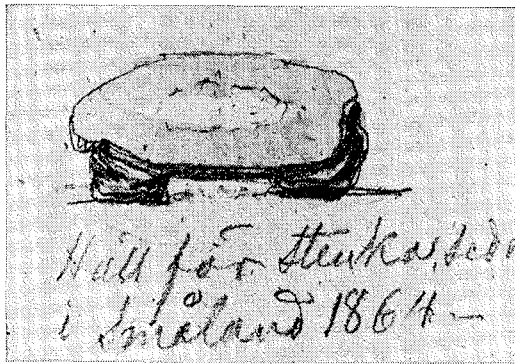 Häll för Stenkas, sed
i Småland 1864 –